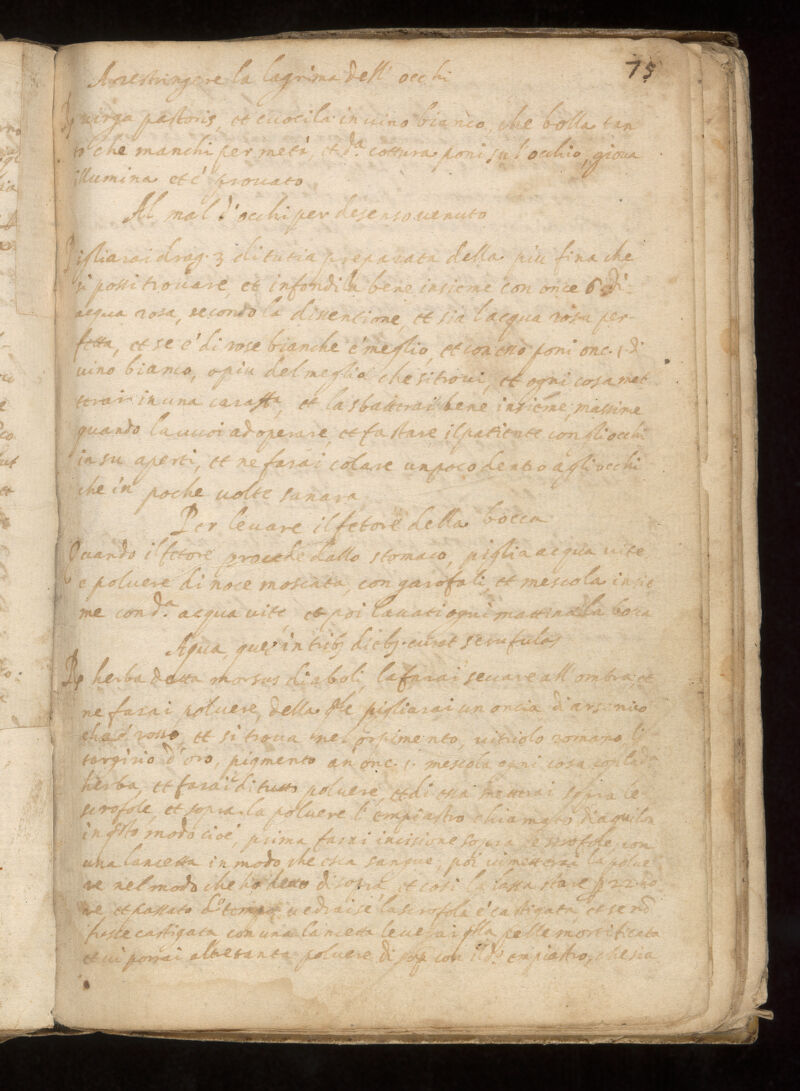 75
Arrestringere la lagrima dell' occhi
Rp virga pastoris, et cuocila in vino bianco, che bolla tan
to che manchi per metà, et da cottura poni su l'occhio, giova
illumina et è provato
Al mal d'occhi per desenso venuto
Pigliarai drag. 3 di tutia preparata della più fina che
si possi trovare, et infondila bene insieme con once 6 di
acqua rosa, secondo la disentione, et sia l'acqua rosa per-
fetta, et se è di rose bianche è meglio, et con esso poni onc. 1 di
vino bianco, o più del meglio che si trovi, et ogni cosa met
terai in una caraffa, et la sbatterai bene insieme massime
quando la vuoi adoperare, et fa stare il patiente con gli occhi
in su aperti, et ne farai colare un poco dentro agli occhi
che in poche volte sanara
Per levare il fetore della bocca
Quando il fetore procede dallo stomaco, piglia acqua vite
e polvere di noce moscata, con garofali, et mescola insie
me con da acqua vite, et poi lavati ogni mattina la boca
Aqua, que in trib, dieb. curat scrufulas
Rp herba detta morsus diaboli, la farai seccare all' ombra, et
ne farai polvere, della qle pigliarai un oncia di arsenico
ch'è rosso, et si trova nel orpimento, vitriolo romano, li
targirio d'oro, pigmento an. onc. 1. mescola ogni cosa con la da
herba, et farai di tutto polvere, et di essa metterai sopra le
scrofole, et sopra la polvere l'empiastro chiamato diaquilon
in qsto modo cioè, prima farai incisione sopra le scrofole, con
una lancetta in modo che esca sangue, poi vi metterai la polve
re nel modo che ho detto di sopra, et così la lassa stare p 22 ho
re, et passato do tempo vedrai se la scrofola è castigata, et se nõ
fusse castigata con una lancetta leverai qlla pelle mortificata
et vi porrai altretanta polvere di sop. con il do empiastro, che sia